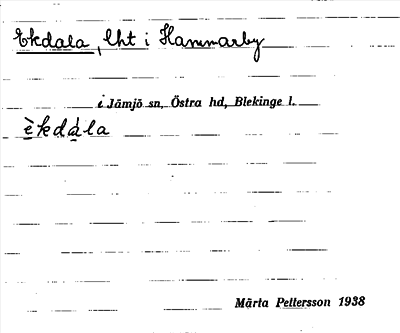 Ekdala, lht i Hammarby
i Jämjö sn, Östra hd, Blekinge l.
è̱kdà̱la
Märta Pettersson 1938